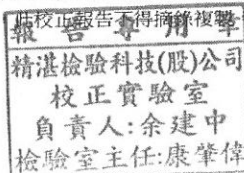 此校正報告不得摘錄複製
報告專用章
精湛檢驗科技(股)公司
校正實驗室
負責人:余建中
檢驗室主任:康肇偉